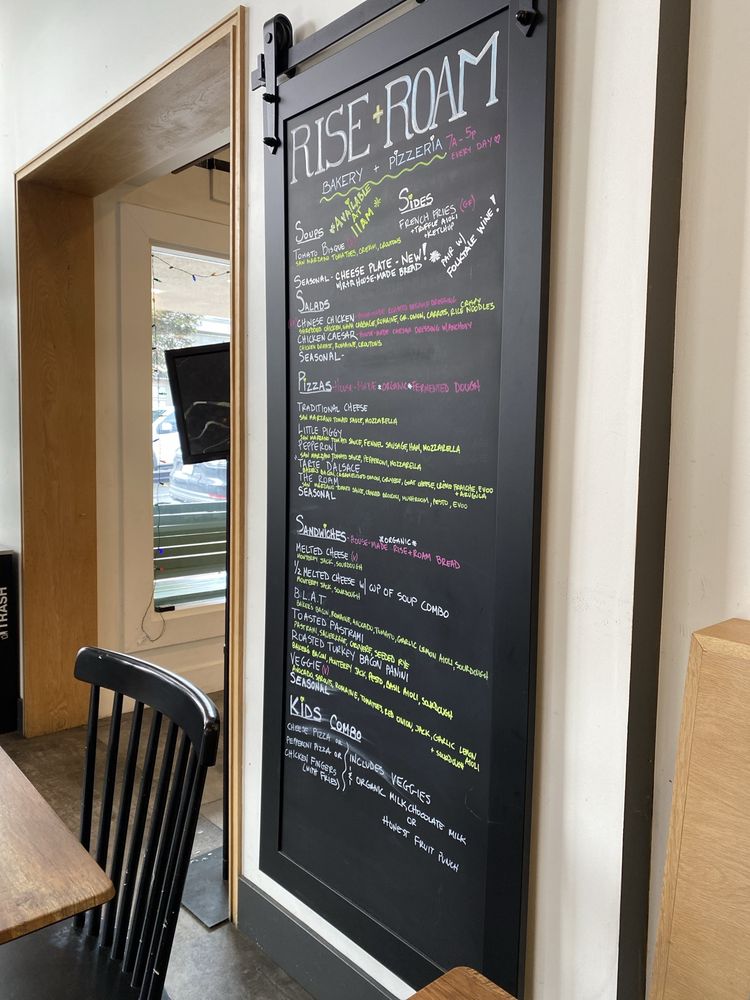 RISE + ROAM
BAKERY + PIZZERIA 7A - 5P
EVERY DAY
SOUPS
*AVAILABLE
AT
11AM*
TOMATO BISQUE
SAN MARZANO TOMATOES, CREAM, CROUTONS
SIDES
FRENCH FRIES (GF)
+TRUFFLE AIOLI
+KETCHUP
SEASONAL - CHEESE PLATE - NEW!
W/R+R HOUSE-MADE BREAD
PAIR W/
FOLKTALE WINE!
SALADS
CHINESE CHICKEN - HOUSE-MADE DRESSING
SHREDDED CHICKEN, NAPA CABBAGE, ROMAINE, GR. ONION, CARROTS, CRISPY RICE NOODLES
CHICKEN CAESAR - HOUSE-MADE CAESAR DRESSING W/ANCHOVY
CHICKEN BREAST, ROMAINE, CROUTONS
SEASONAL -
PIZZAS - HOUSE-MADE *ORGANIC* FERMENTED DOUGH
TRADITIONAL CHEESE
SAN MARZANO TOMATO SAUCE, MOZZARELLA
LITTLE PIGGY
SAN MARZANO TOMATO SAUCE, FENNEL SAUSAGE, HAM, MOZZARELLA
PEPPERONI
SAN MARZANO TOMATO SAUCE, PEPPERONI, MOZZARELLA
TARTE DALSACE
BAKER'S BACON, CARAMELIZED ONION, GRUYERE, GOAT CHEESE, CRÈME FRAICHE, EVOO
+ ARUGULA
THE ROAM
SAN MARZANO TOMATO SAUCE, MUSHROOM, PESTO, EVOO
SEASONAL
SANDWICHES - HOUSE-MADE *ORGANIC* RISE+ROAM BREAD
MELTED CHEESE (V)
MONTEREY JACK, SOURDOUGH
1/2 MELTED CHEESE W/ CUP OF SOUP COMBO
MONTEREY JACK, SOURDOUGH
B.L.A.T
BAKER'S BACON, ROMAINE, AVOCADO, TOMATO, GARLIC LEMON AIOLI, SOURDOUGH
TOASTED PASTRAMI
PASTRAMI, SAUERKRAUT, GRUYERE, SEEDED RYE
ROASTED TURKEY BACON PANINI
BAKERS BACON, MONTEREY JACK, PESTO, BASIL AIOLI, SOURDOUGH
VEGGIE (V)
AVOCADO, SPROUTS, ROMAINE, TOMATOES, RED ONION, JACK, GARLIC LEMON AIOLI
+ SOURDOUGH
SEASONAL
KIDS COMBO
CHEESE PIZZA OR
PEPPERONI PIZZA OR
CHICKEN FINGERS
(WITH FRIES)
INCLUDES VEGGIES
& ORGANIC MILK, CHOCOLATE MILK
OR
HONEST FRUIT PUNCH
TRASH